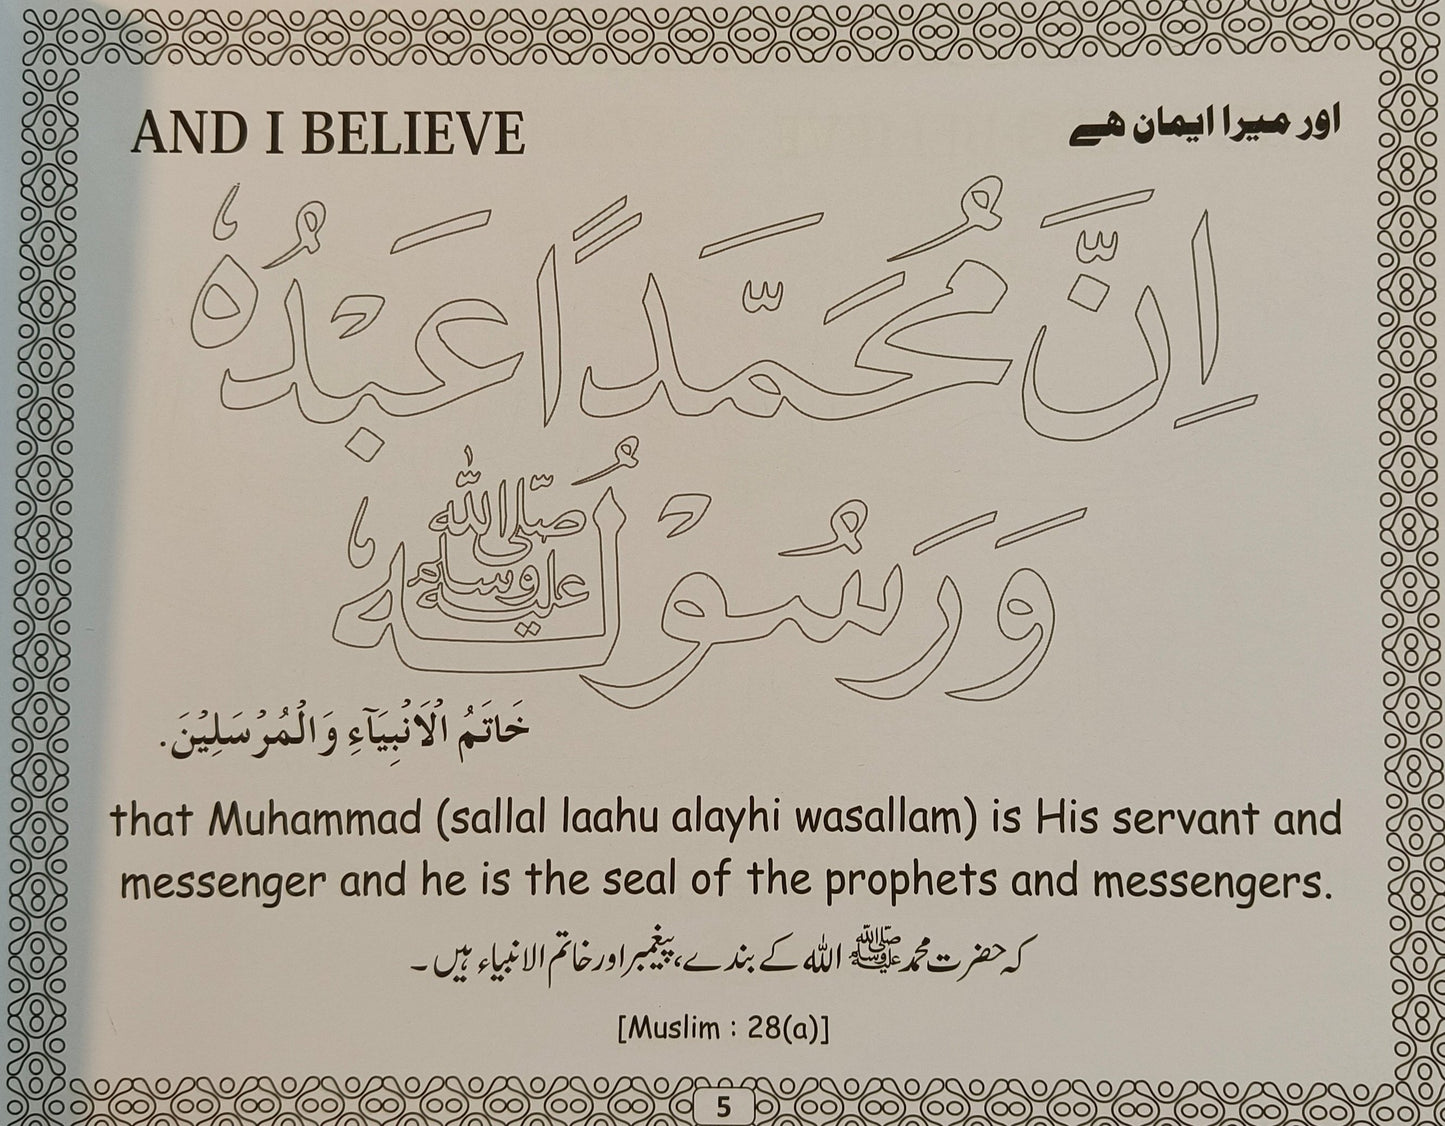 AND I BELIEVE
اور میرا ایمان ہے
اِنَّ مُحَمَّدًا عَبْدُهٗ
وَرَسُوْلُهٗ صلى الله عليه وسلم
خَاتَمُ الْاَنْبِيَآءِ وَالْمُرْسَلِيْنَ.
that Muhammad (sallal laahu alayhi wasallam) is His servant and
messenger and he is the seal of the prophets and messengers.
کہ حضرت محمد ﷺ اللہ کے بندے، پیغمبر اور خاتم الانبیاء ہیں۔
[Muslim : 28(a)]
5